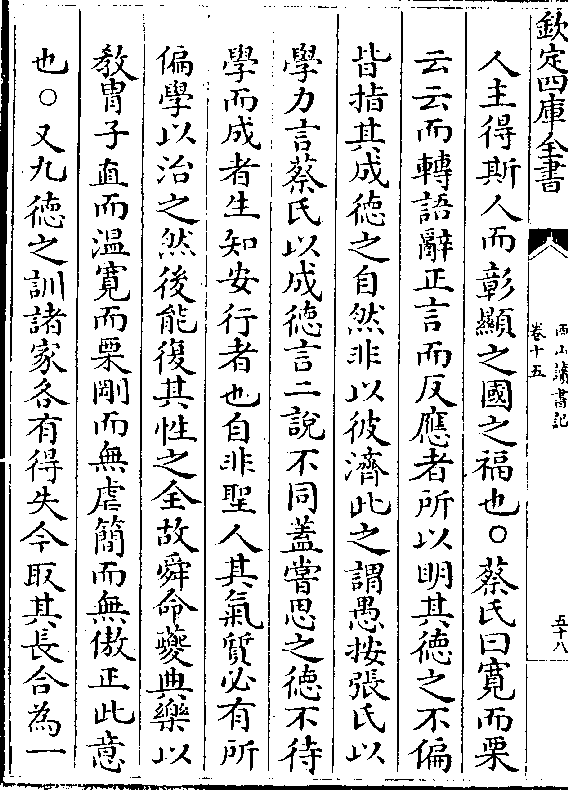 欽定四庫全書
西山讀書記
卷十五
五十八
人主得斯人而彰顯之國之福也○蔡氏曰寛而栗
云云而轉語辭正言而反應者所以明其德之不偏
皆指其成徳之自然非以彼濟此之謂愚按張氏以
學力言蔡氏以成徳言二說不同蓋嘗思之徳不待
學而成者生知安行者也自非聖人其氣質必有所
偏學以治之然後能復其性之全故舜命夔典樂以
教胄子直而温寛而栗剛而無虐簡而無傲正此意
也○又九徳之訓諸家各有得失今取其長合為一